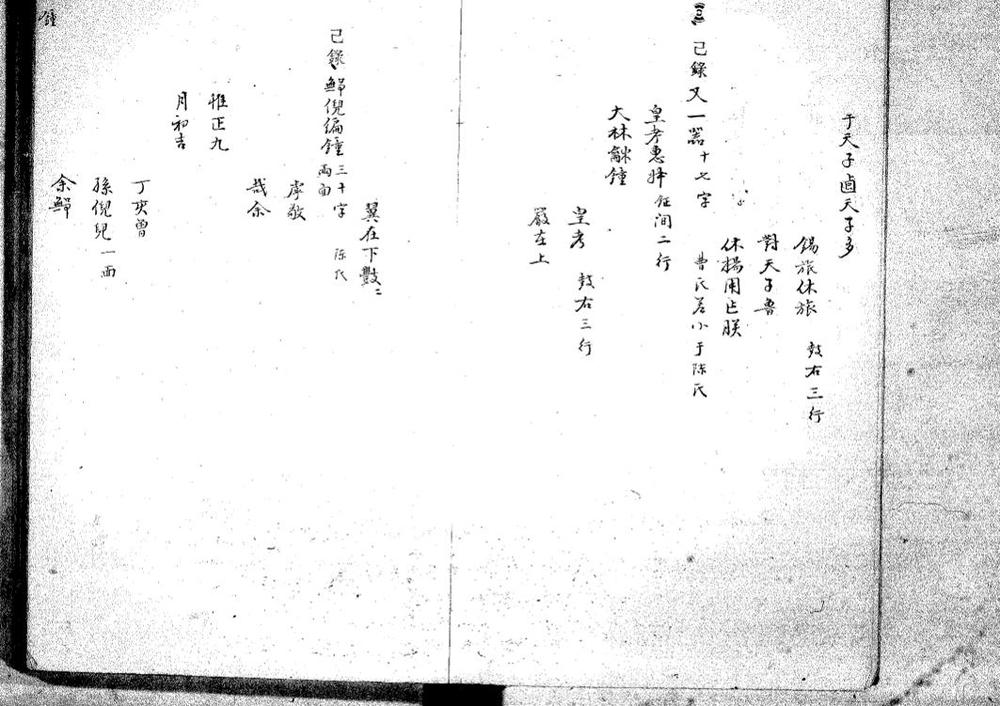 于天子卣天子多
錫旅休旅 鼓右三行
對天子魯
休揚用乍朕
己錄又一器 十七字 曹氏差小于陳氏
皇考惠 鉦間二行
大林龢鐘
皇考 鼓右三行
嚴在上
翼在下數=
己錄 鄦倪編鐘 三十字 兩面 陳氏
虔敬
哉余
惟正九
月初吉
丁亥曾
孫倪兒一面
余
鐘